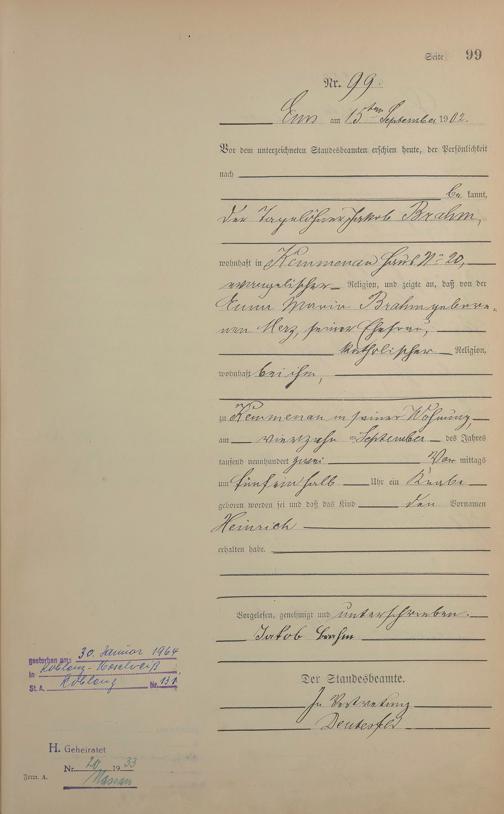 Seite 99
Nr. 99.
Ems am 15ten September 1902.
Vor dem unterzeichneten Standesbeamten erschien heute, der Persönlichkeit
nach
be kannt,
der Tagelöhner Jakob Brahm,
wohnhaft in Kemmenau Haus No 20,
evangelischer Religion, und zeigte an, daß von der
Anna Maria Brahm gebore-
nen Merz, seiner Ehefrau,
katholischer Religion,
wohnhaft bei ihm,
zu Kemmenau in seiner Wohnung,
am vierzehn September des Jahres
tausend neunhundert zwei Vor mittags
um fünfeinhalb Uhr ein Knabe
geboren worden sei und daß das Kind den Vornamen
Heinrich
erhalten habe.
Vorgelesen, genehmigt und unterschrieben.
Jakob Brahm
Der Standesbeamte.
In Vertretung
gestorben am: 30. Januar 1964
in Koblenz-Moselweiß
St. A. Koblenz Nr. 131
H. Geheiratet
Nr. 20 1933
Nassau
Form. A.